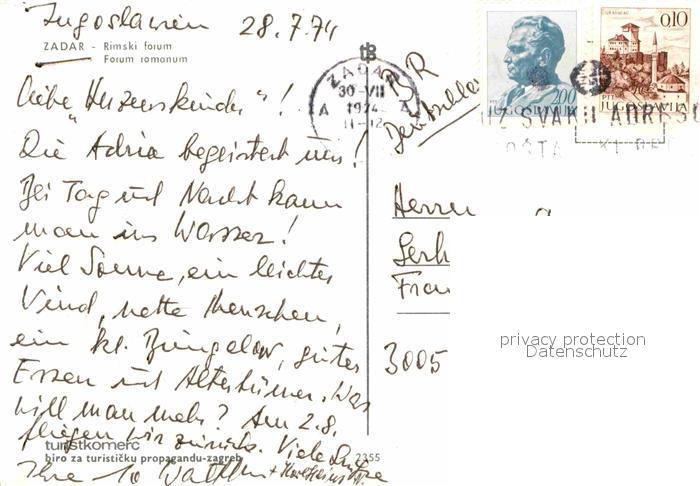 Jugoslawien 28.7.74
ZADAR - Rimski forum
Forum romanum
Liebe "Herzenskinder"!
Die Adria begeistert uns!
Bei Tag und Nacht kann
man ins Wasser!
Viel Sonne, ein leichter
Wind, nette Menschen,
ein kl. Bungalow, gutes
Essen und Altertümer. Was
will man mehr? Am 2.8.
fliegen wir zurück. Viele Grüße
Ihre
turistkomerc
biro za turističku propagandu-zagreb
2355
ZADAR
30-VII
1974
11-12
A A
BR
2.00
JUGOSLAVIJA
GRADAČAC
0,10
PTT
JUGOSLAVIJA
SVAKU ADRESU
POŠTA
Herrn
Gerh
Frau
3005
privacy protection
Datenschutz